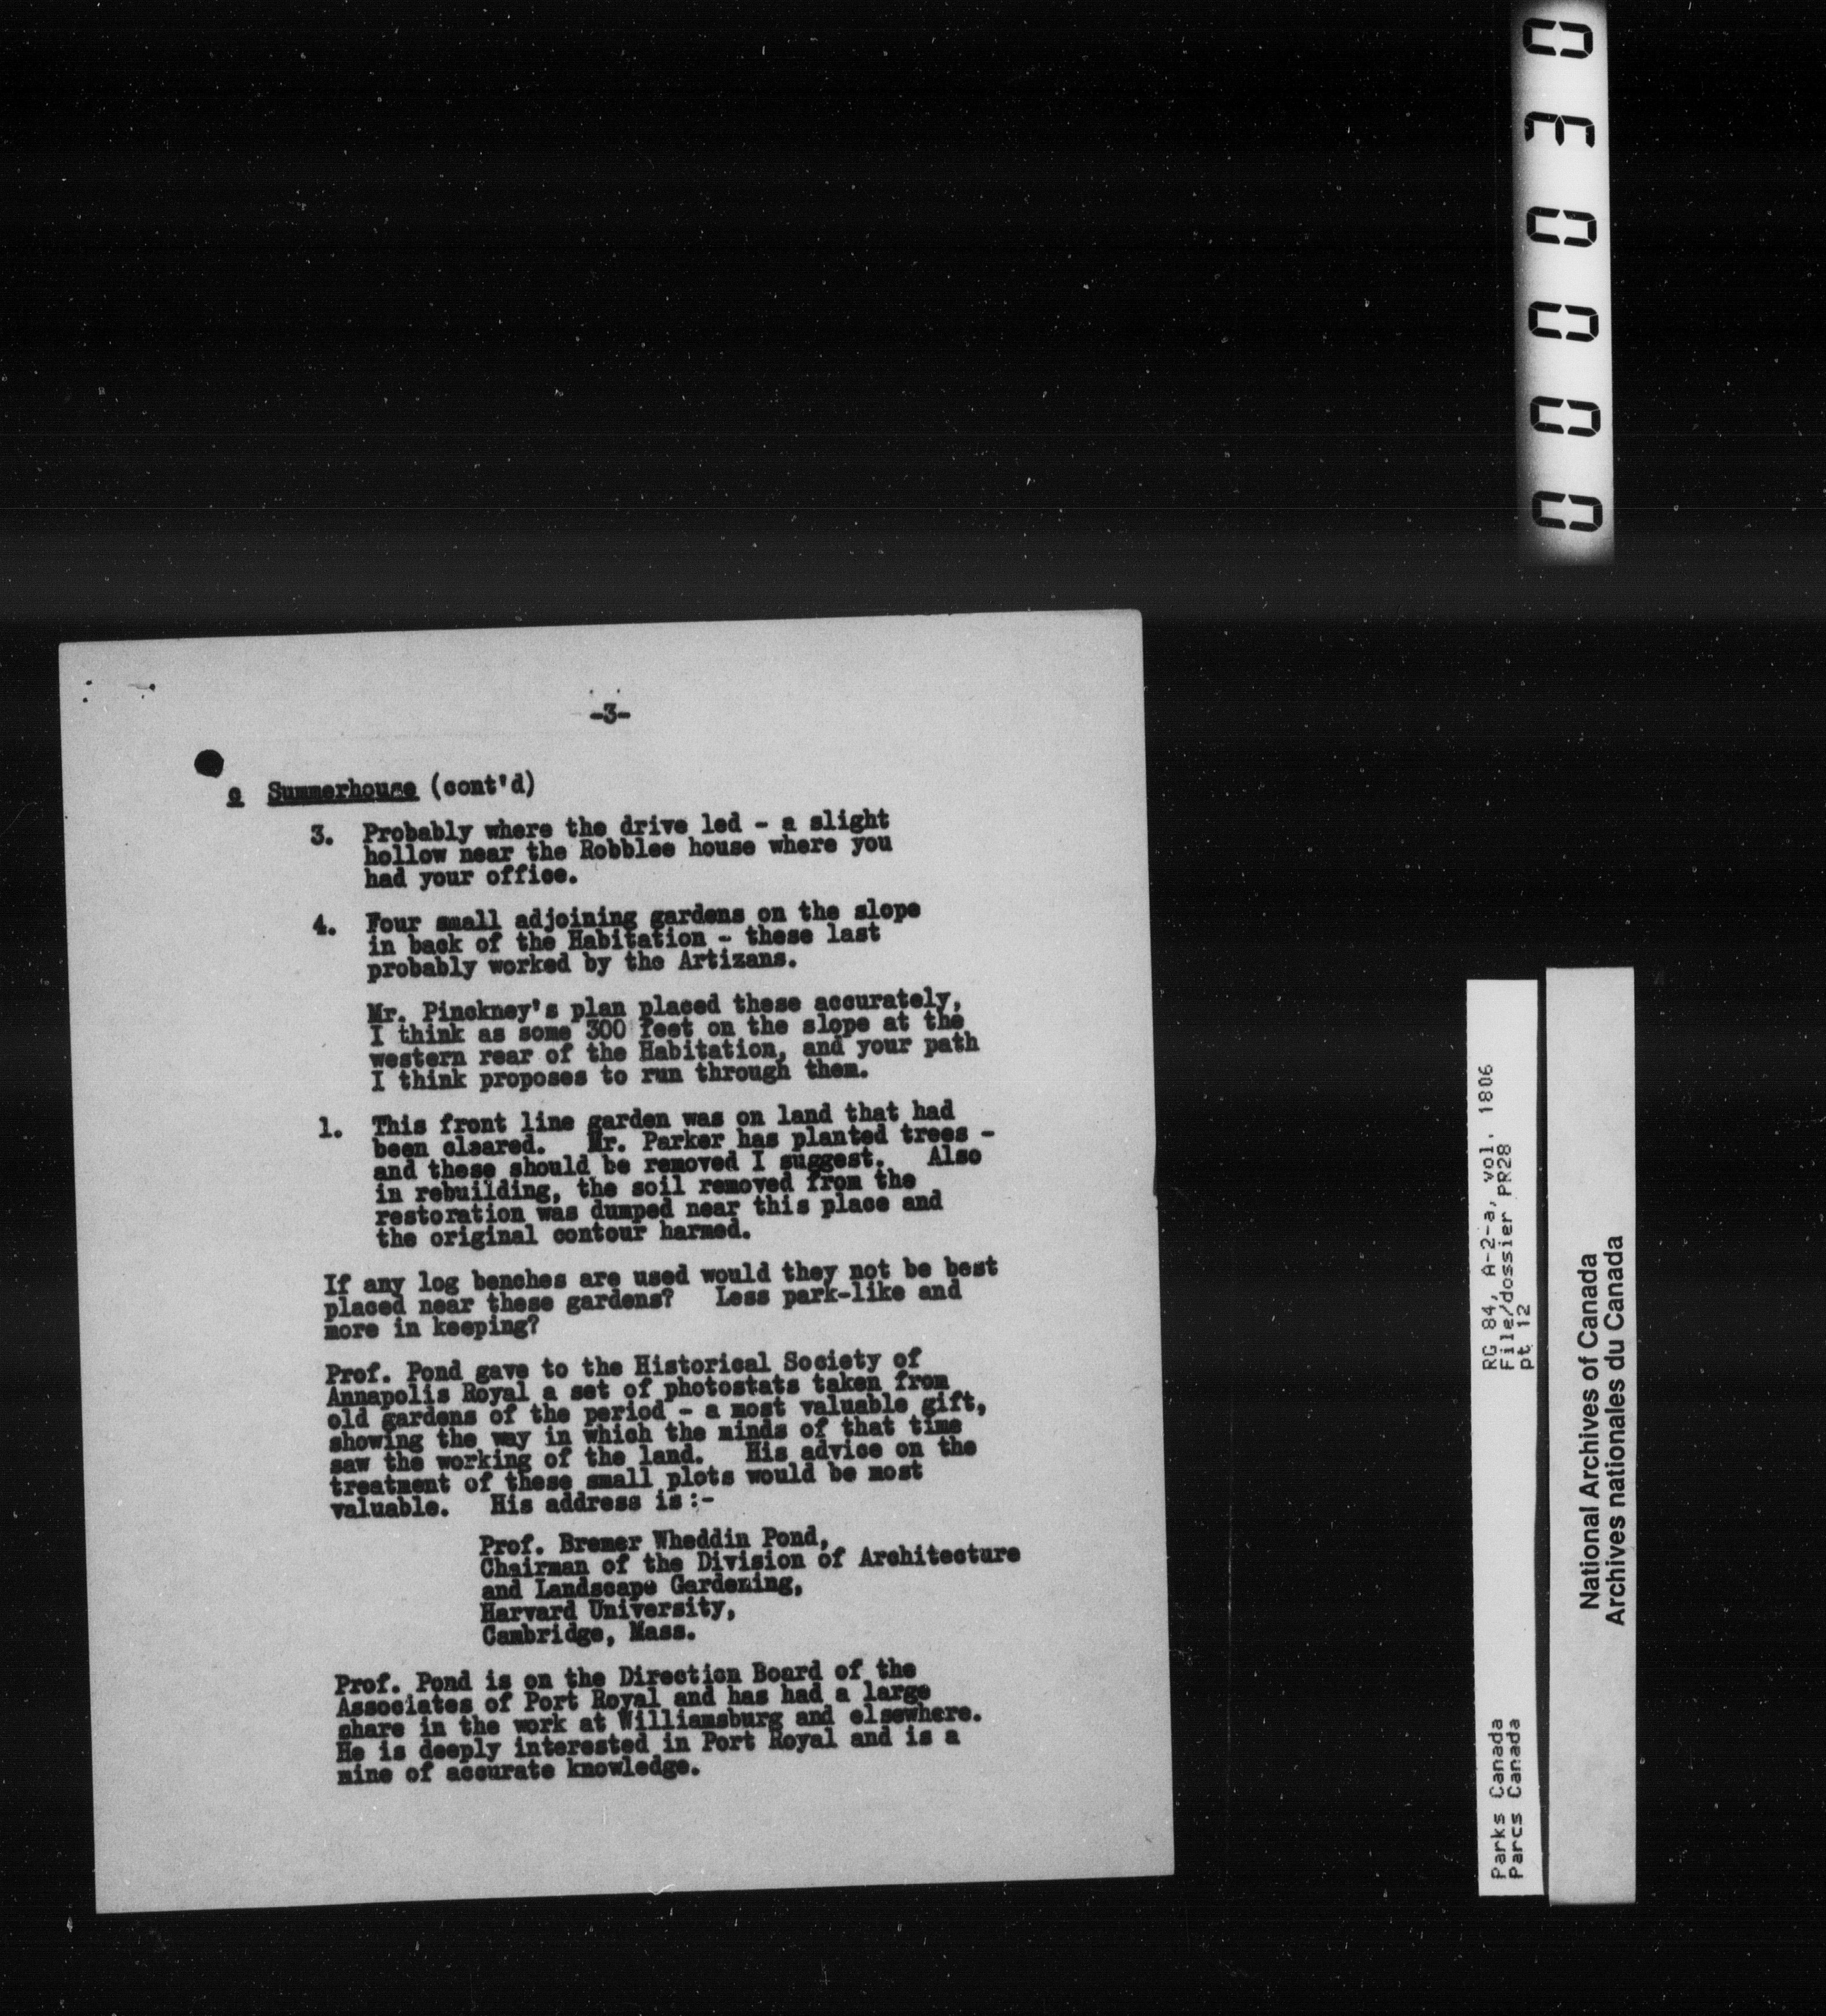 -3-
c Summerhouse (cont'd)
3. Probably where the drive led - a slight
hollow near the Robblee house where you
had your office.
4. Four small adjoining gardens on the slope
in back of the Habitation - these last
probably worked by the Artizans.
Mr. Pinckney's plan placed these accurately,
I think as some 300 feet on the slope at the
western rear of the Habitation, and your path
I think proposes to run through them.
1. This front line garden was on land that had
been cleared. Mr. Parker has planted trees -
and these should be removed I suggest. Also
in rebuilding, the soil removed from the
restoration was dumped near this place and
the original contour harmed.
If any log benches are used would they not be best
placed near these gardens? Less park-like and
more in keeping?
Prof. Pond gave to the Historical Society of
Annapolis Royal a set of photostats taken from
old gardens of the period - a most valuable gift,
showing the way in which the minds of that time
saw the working of the land. His advice on the
treatment of these small plots would be most
valuable. His address is:-
Prof. Bremer Wheddin Pond,
Chairman of the Division of Architecture
and Landscape Gardening,
Harvard University,
Cambridge, Mass.
Prof. Pond is on the Direction Board of the
Associates of Port Royal and has had a large
share in the work at Williamsburg and elsewhere.
He is deeply interested in Port Royal and is a
mine of accurate knowledge.
000030
Parks Canada
Parcs Canada
RG 84, A-2-a, vol. 1806
File/dossier PR28
pt 12
National Archives of Canada
Archives nationales du Canada